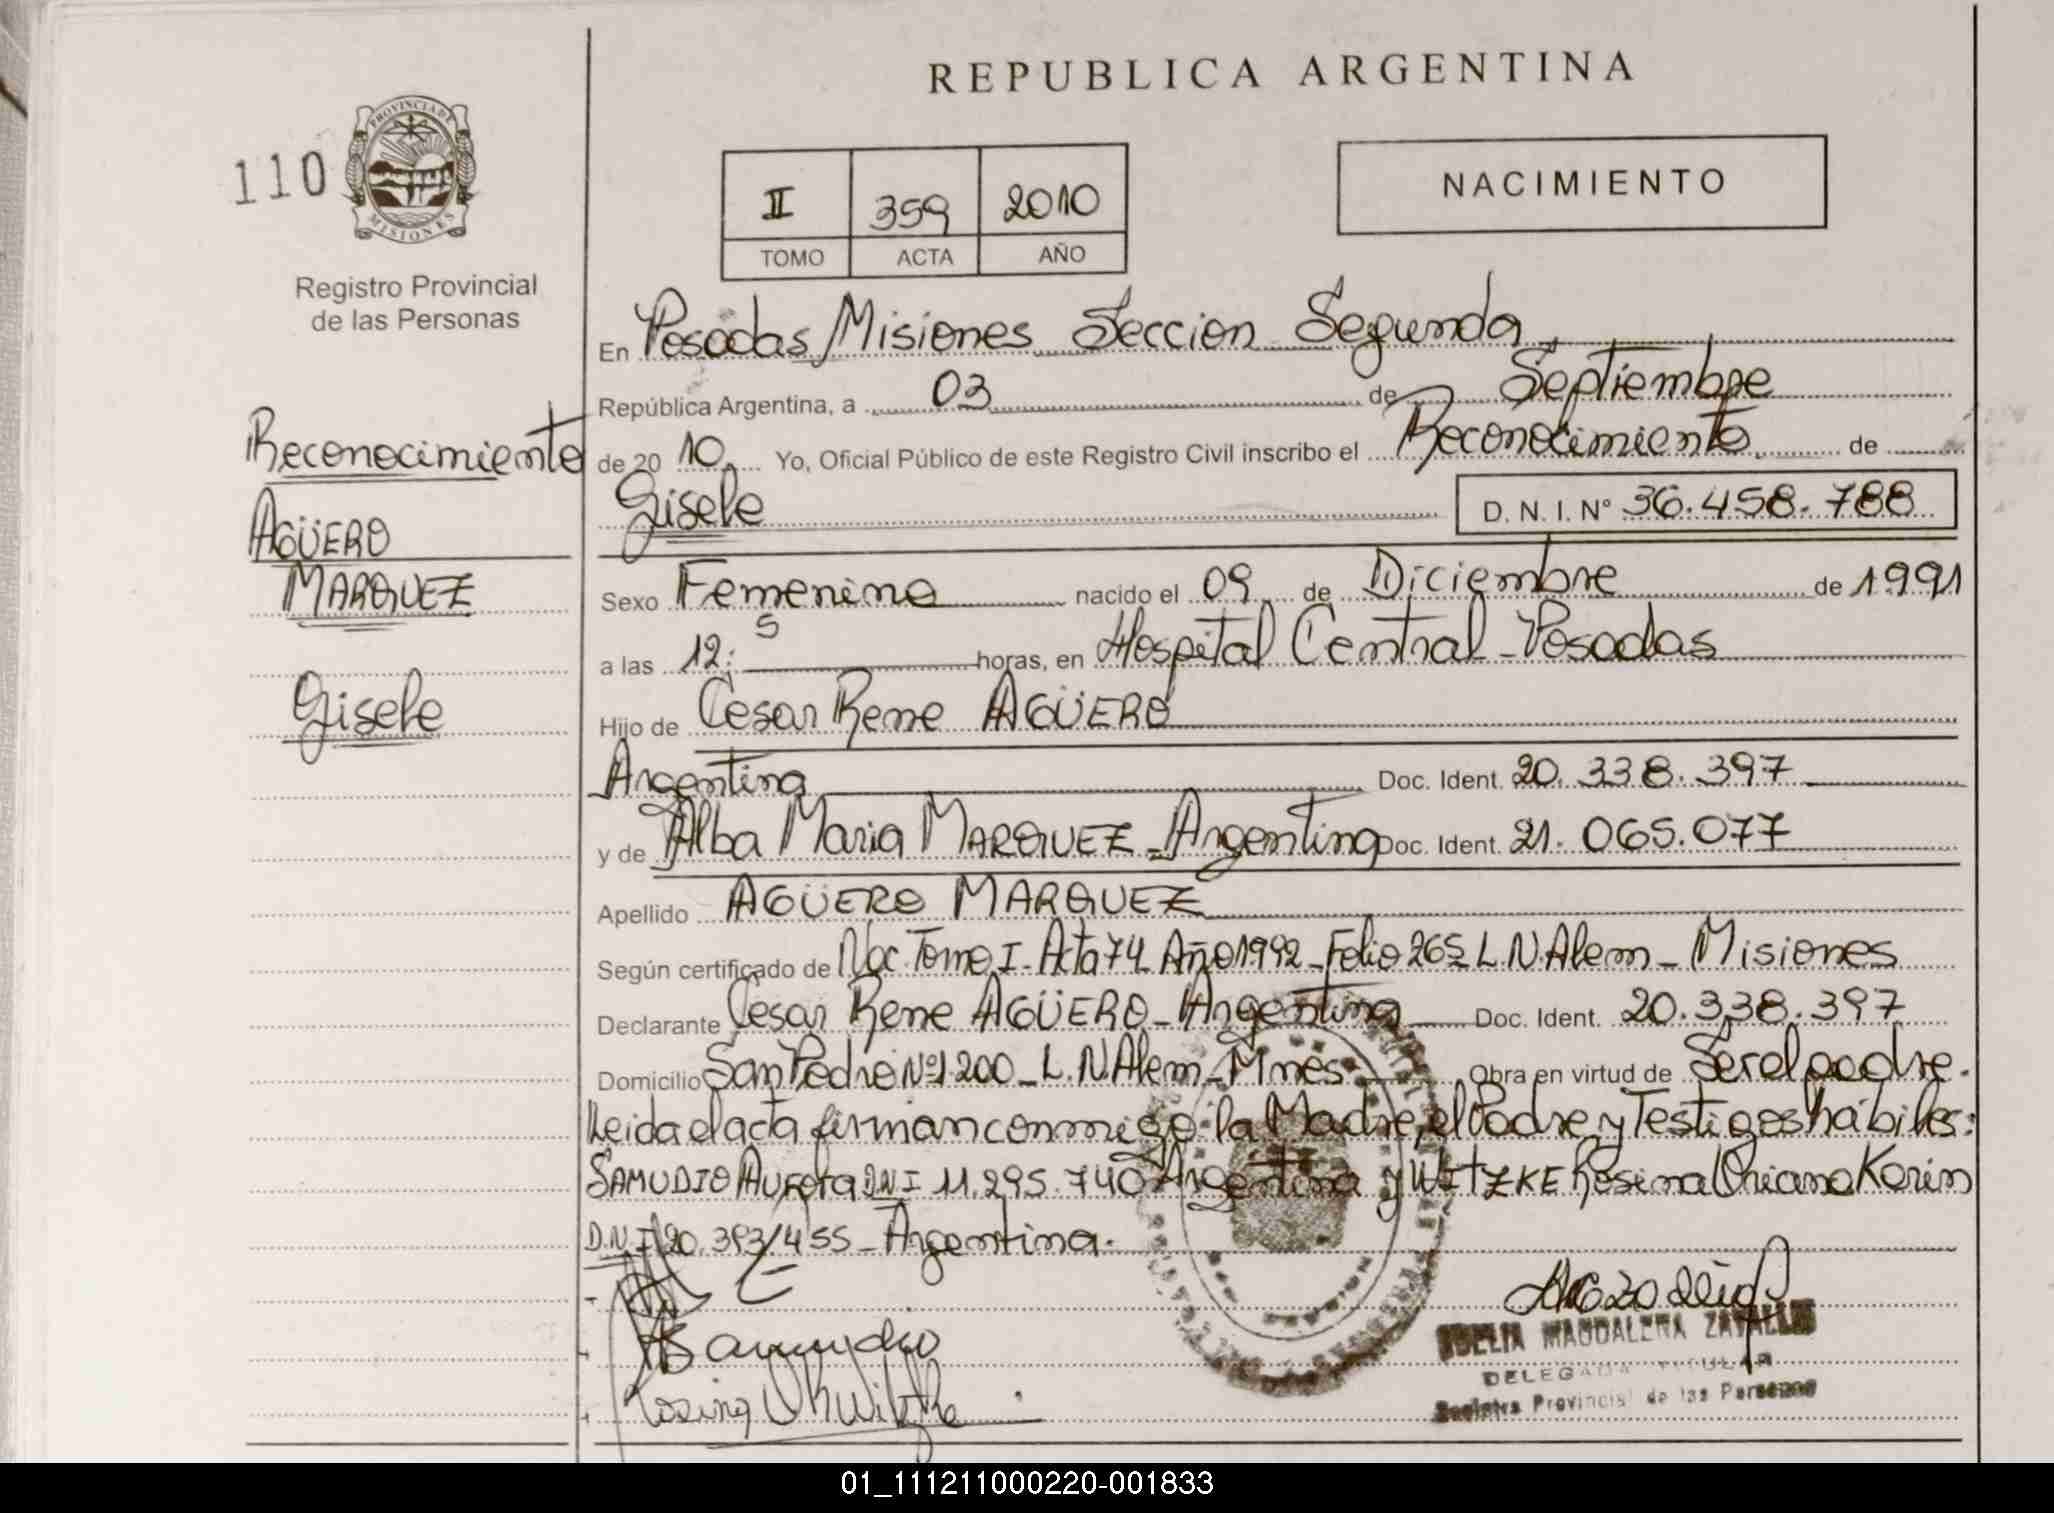 REPUBLICA ARGENTINA
110
PROVINCIA DE
MISIONES
Registro Provincial
de las Personas
II 359 2010
TOMO ACTA AÑO
NACIMIENTO
Reconocimiento
AGÜERO
MARQUEZ
Gisele
En Posadas Misiones Seccion Segunda
República Argentina, a 03 de Septiembre
de 2010 Yo, Oficial Público de este Registro Civil inscribo el Reconocimiento de
Gisele D. N. I. Nº 36.458.788
Sexo Femenino nacido el 09 de Diciembre de 1991
a las 12:5 horas, en Hospital Central - Posadas
Hijo de Cesar Rene AGÜERO
Argentina Doc. Ident. 20.338.397
y de Alba Maria MARQUEZ - Argentina Doc. Ident. 21.065.077
Apellido AGÜERO MARQUEZ
Según certificado de Nac. Tomo I - Acta 74 Año 1992 - Folio 265 L.N.Alem - Misiones
Declarante Cesar Rene AGÜERO - Argentina Doc. Ident. 20.338.397
Domicilio San Pedro Nº1200 - L.N.Alem - Mnes Obra en virtud de Ser el padre.
Leida el acta firman conmigo la Madre, el Padre y Testigos hábiles:
SAMUDIO Aurora DNI 11.295.740 Argentina y WITZKE Rosina Oriana Karin
D.N.I 20.393.455 - Argentina.
Samudio
MAGDALENA
DELEGADA TITULAR
Registro Provincial de las Personas
01_111211000220-001833